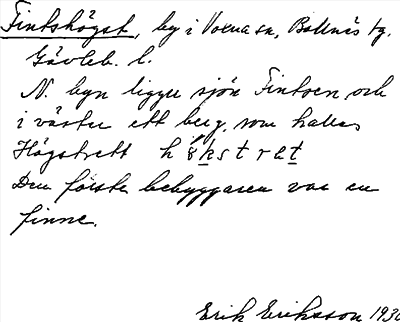 Finkshögst, by i Voxna sn, Bollnäs tg.
Gävleb. l.
N. byn ligger sjön Fintsen, och
i väster ett berg, som kallas
Högstrett hökstrat
Den första bebyggaren var en
finne.
Erik Eriksson 1930